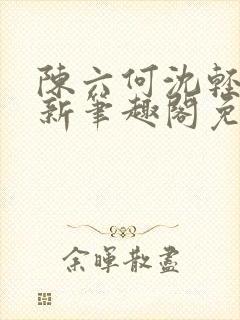 陳六何沈輕
新筆趣閣免
余暉散盡